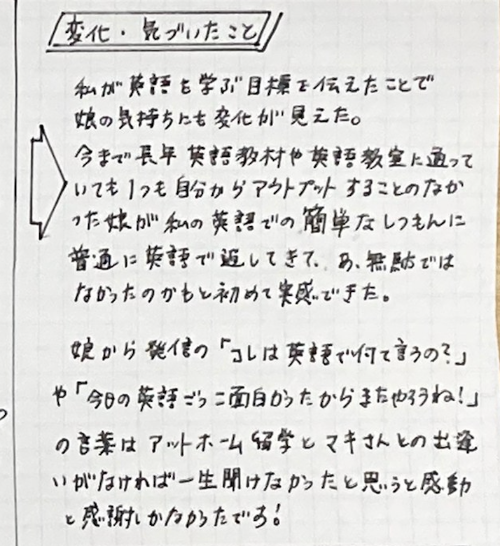 変化・気づいたこと
私が英語を学ぶ目標を伝えたことで
娘の気持ちにも変化が見えた。
今まで長年英語教材や英語教室に通って
いても1つも自分からアウトプットすることのなか
った娘が私の英語での簡単なしつもんに
普通に英語で返してきて、あ、無駄では
なかったのかもと初めて実感できた。
娘から発信の「コレは英語で付て言うの?」
や「今日の英語ごっこ面白かったからまたやろうね!」
の言葉はアットホーム留学とマキさんとの出逢
いがなければ一生聞けなかったと思うと感動
と感謝しかなかったです!